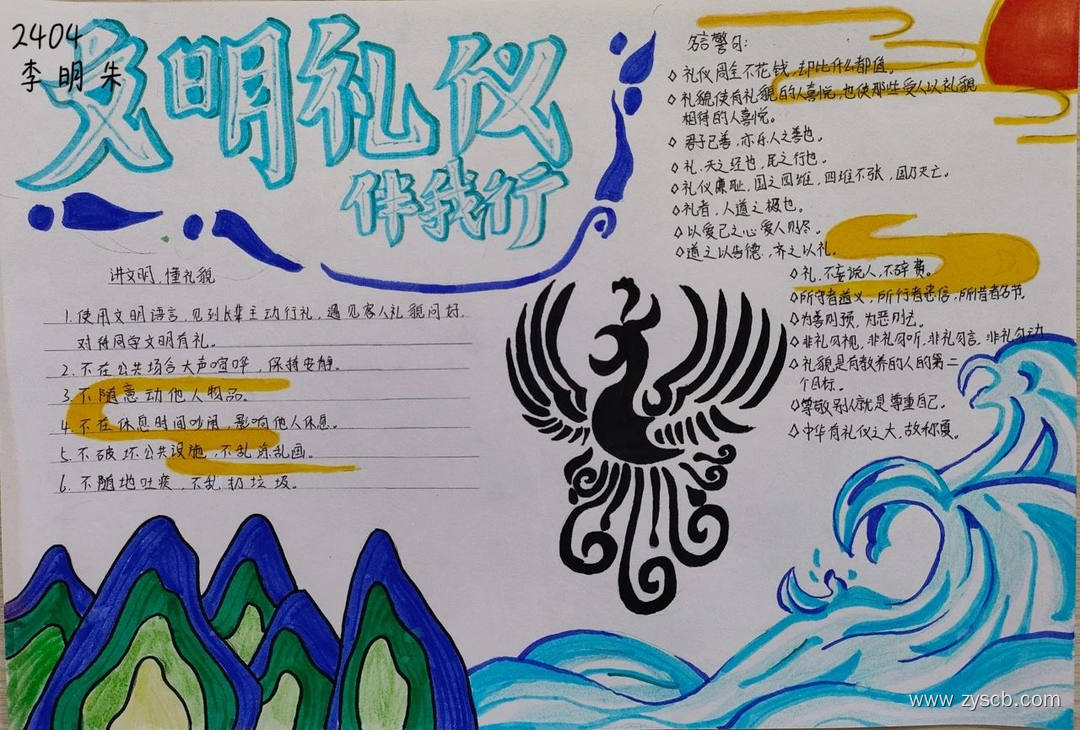 2404
李明朱
文明礼仪
伴我行
讲文明,懂礼貌
1.使用文明语言,见到长辈主动行礼,遇见客人礼貌问好.
对待同学文明有礼。
2.不在公共场合大声喧哗,保持安静。
3.不随意动他人物品。
4.不在休息时间吵闹,影响他人休息。
5.不破坏公共设施,不乱涂乱画。
6.不随地吐痰,不乱扔垃圾。
名言警句:
◇礼仪周全不花钱,却比什么都值。
◇礼貌使有礼貌的人喜悦,也使那些受人以礼貌
相待的人喜悦。
◇君子己善,亦乐人之善也。
◇礼,天之经也,民之行也。
◇礼仪廉耻,国之四维,四维不张,国乃灭亡。
◇礼者,人道之极也。
◇以爱己之心爱人则尽。
◇道之以德,齐之以礼。
◇礼,不妄说人,不辞费。
◇所守者道义,所行者忠信,所惜者名节。
◇为善则预,为恶则去。
◇非礼勿视,非礼勿听,非礼勿言,非礼勿动
◇礼貌是有教养的人的第二
个目标。
◇尊敬别人就是尊重自己。
◇中华有礼仪之大,故称夏。
www.zyscb.com